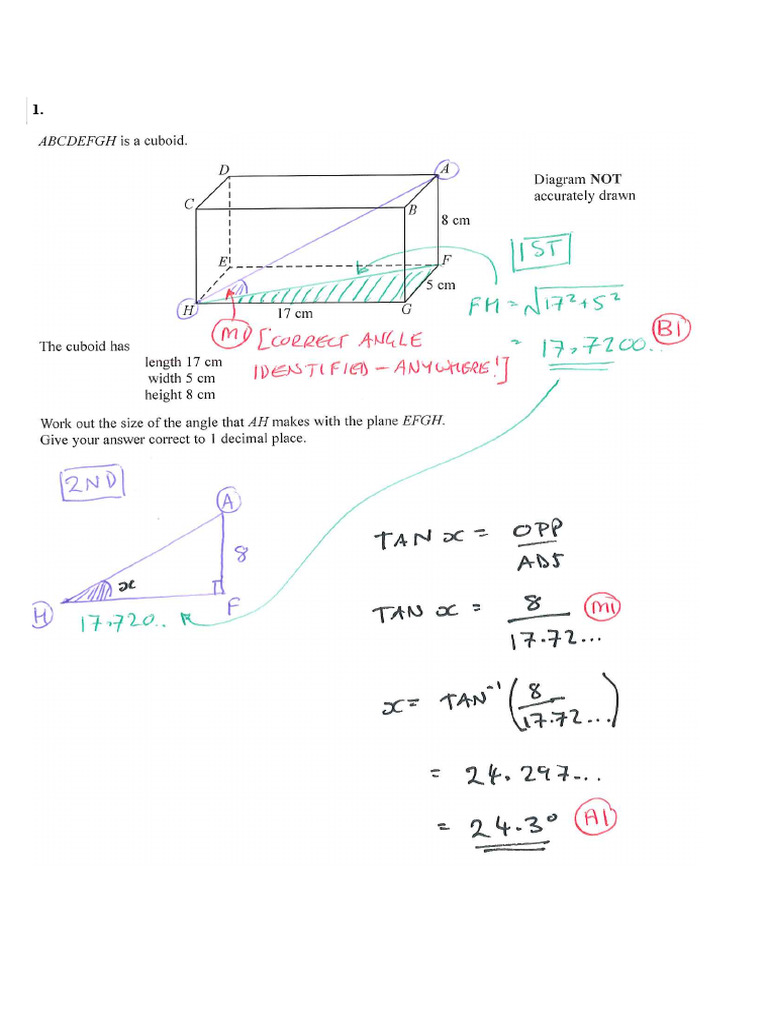 1.
ABCDEFGH is a cuboid.
D
A
Diagram NOT
accurately drawn
C
B
8 cm
1ST
E
F
5 cm
FH = √17²+5²
H
17 cm
G
M1 [CORRECT ANGLE
IDENTIFIED – ANYWHERE!]
= 17.7200... B1
The cuboid has
length 17 cm
width 5 cm
height 8 cm
Work out the size of the angle that AH makes with the plane EFGH.
Give your answer correct to 1 decimal place.
2ND
A
8
x
H
F
17.720..
TAN x = OPP
ADJ
TAN x = 8 M1
17.72...
x = TAN⁻¹(8
17.72...)
= 24.297...
= 24.3° A1